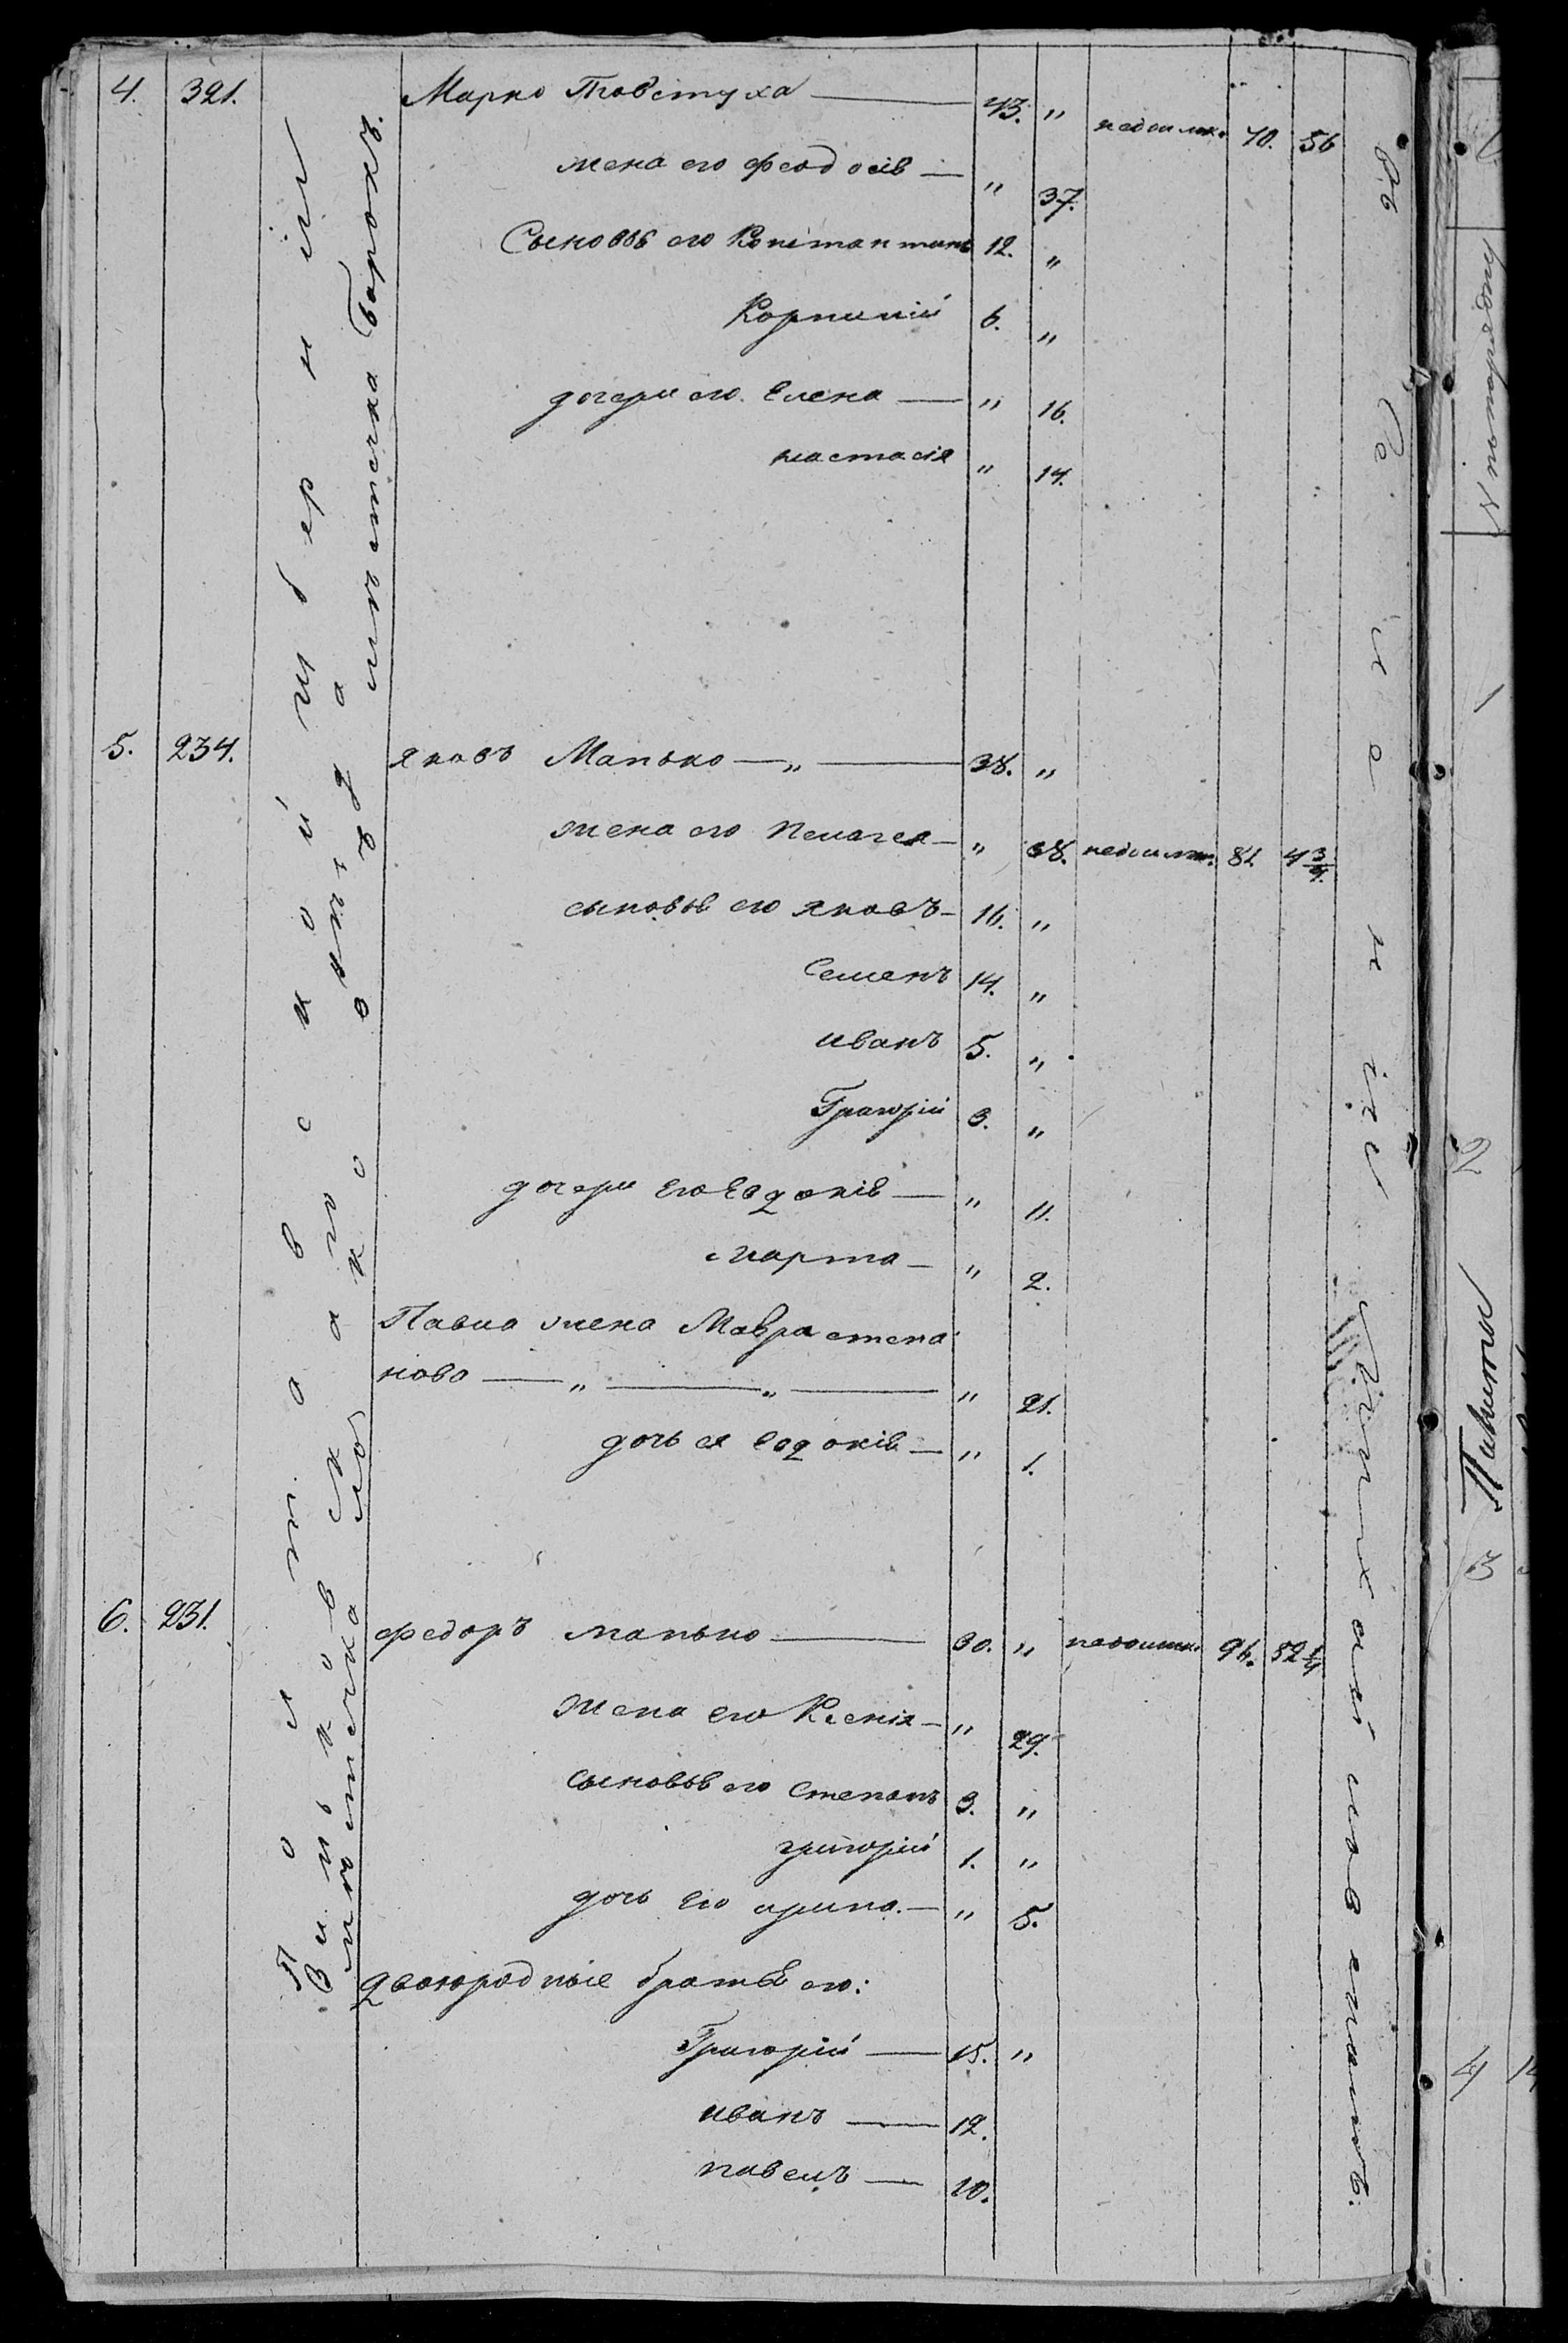 4. 321. Марко Товстуха — 43. " недоимк. 70. 56
жена его Феодосія — " 37.
Сыновья его Константинъ 12. "
Корнилій 6. "
дочери его Елена — " 16.
настасія " 14.
5. 234. яковъ Манько — " — 38. "
жена его Пелагея — " 38. недоимк. 81. 4 3/4.
сыновья его яковъ — 16. "
Семенъ 14. "
иванъ 5. "
Григорій 3. "
дочери его Евдокія — " 11.
марта — " 2.
Павла жена Мавра степа
нова — " — " — " 21.
дочь ея Евдокія — " 1.
6. 231. федоръ манько — 30. " недоимк. 96. 52 1/4
жена его Ксенія — " 29.
сыновья его Степанъ 3. "
григорій 1. "
дочь его ирина. — " 5.
двоюродные братья его:
Григорій — 15. "
иванъ — 12.
павелъ — 10.
Полтавской губерніи
Зиньковскаго уѣзда
мѣстечка
мѣстечка Борокъ.
Въ Кавказской
N попорядку
1
2
3
4